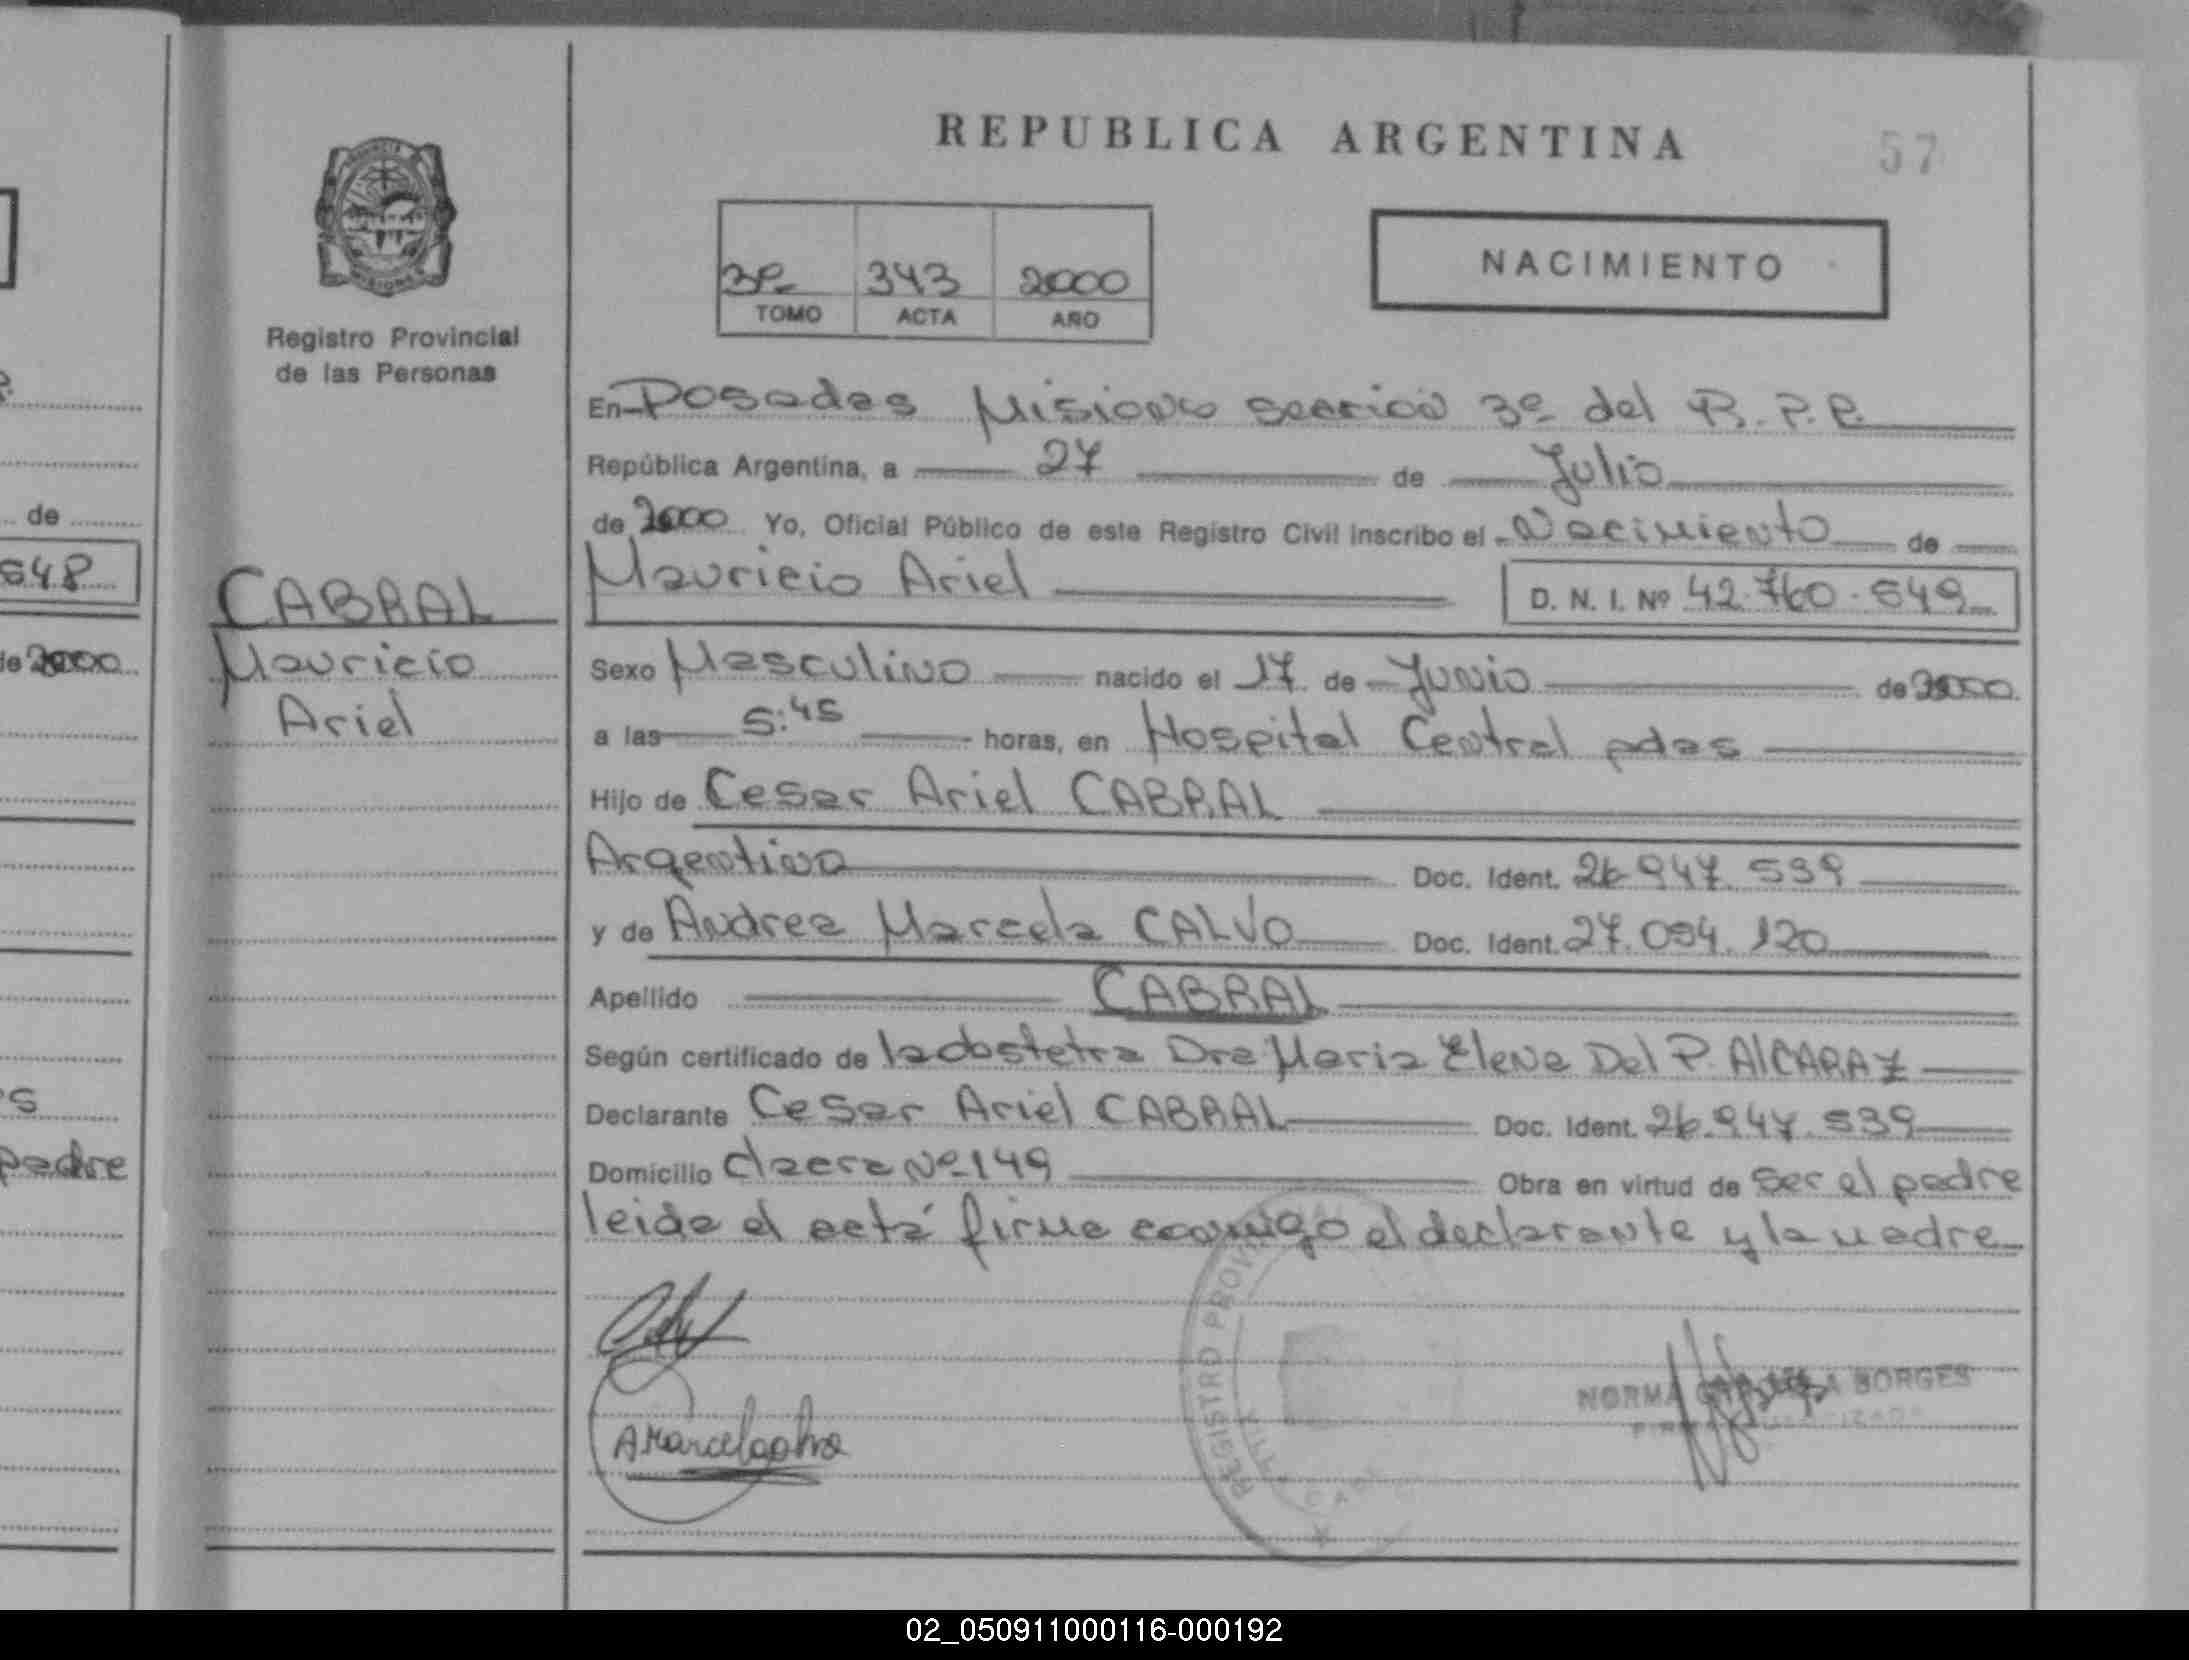 REPUBLICA ARGENTINA
57
3º 343 2000
TOMO ACTA AÑO
NACIMIENTO
PROVINCIA MISIONES
Registro Provincial
de las Personas
CABRAL
Mauricio
Ariel
En Posadas Misiones sección 3º del R.P.P.
República Argentina, a 27 de Julio
de 2000 Yo, Oficial Público de este Registro Civil inscribo el Nacimiento de
Mauricio Ariel D. N. I. Nº 42.760.649
Sexo Masculino nacido el 17 de Junio de 2000
a las 5:45 horas, en Hospital Central pdas
Hijo de Cesar Ariel CABRAL
Argentino Doc. Ident. 26.947.539
y de Andrea Marcela CALVO Doc. Ident. 27.094.120
Apellido CABRAL
Según certificado de la obstetra Dra Maria Elena Del P. AlCARAZ
Declarante Cesar Ariel CABRAL Doc. Ident. 26.947.539
Domicilio Nº 149 Obra en virtud de ser el padre
leida el acta firma conmigo el declarante y la madre
REGISTRO PROVINCIAL
NORMA BORGES
de
648
de 2000
s
padre
02_050911000116-000192